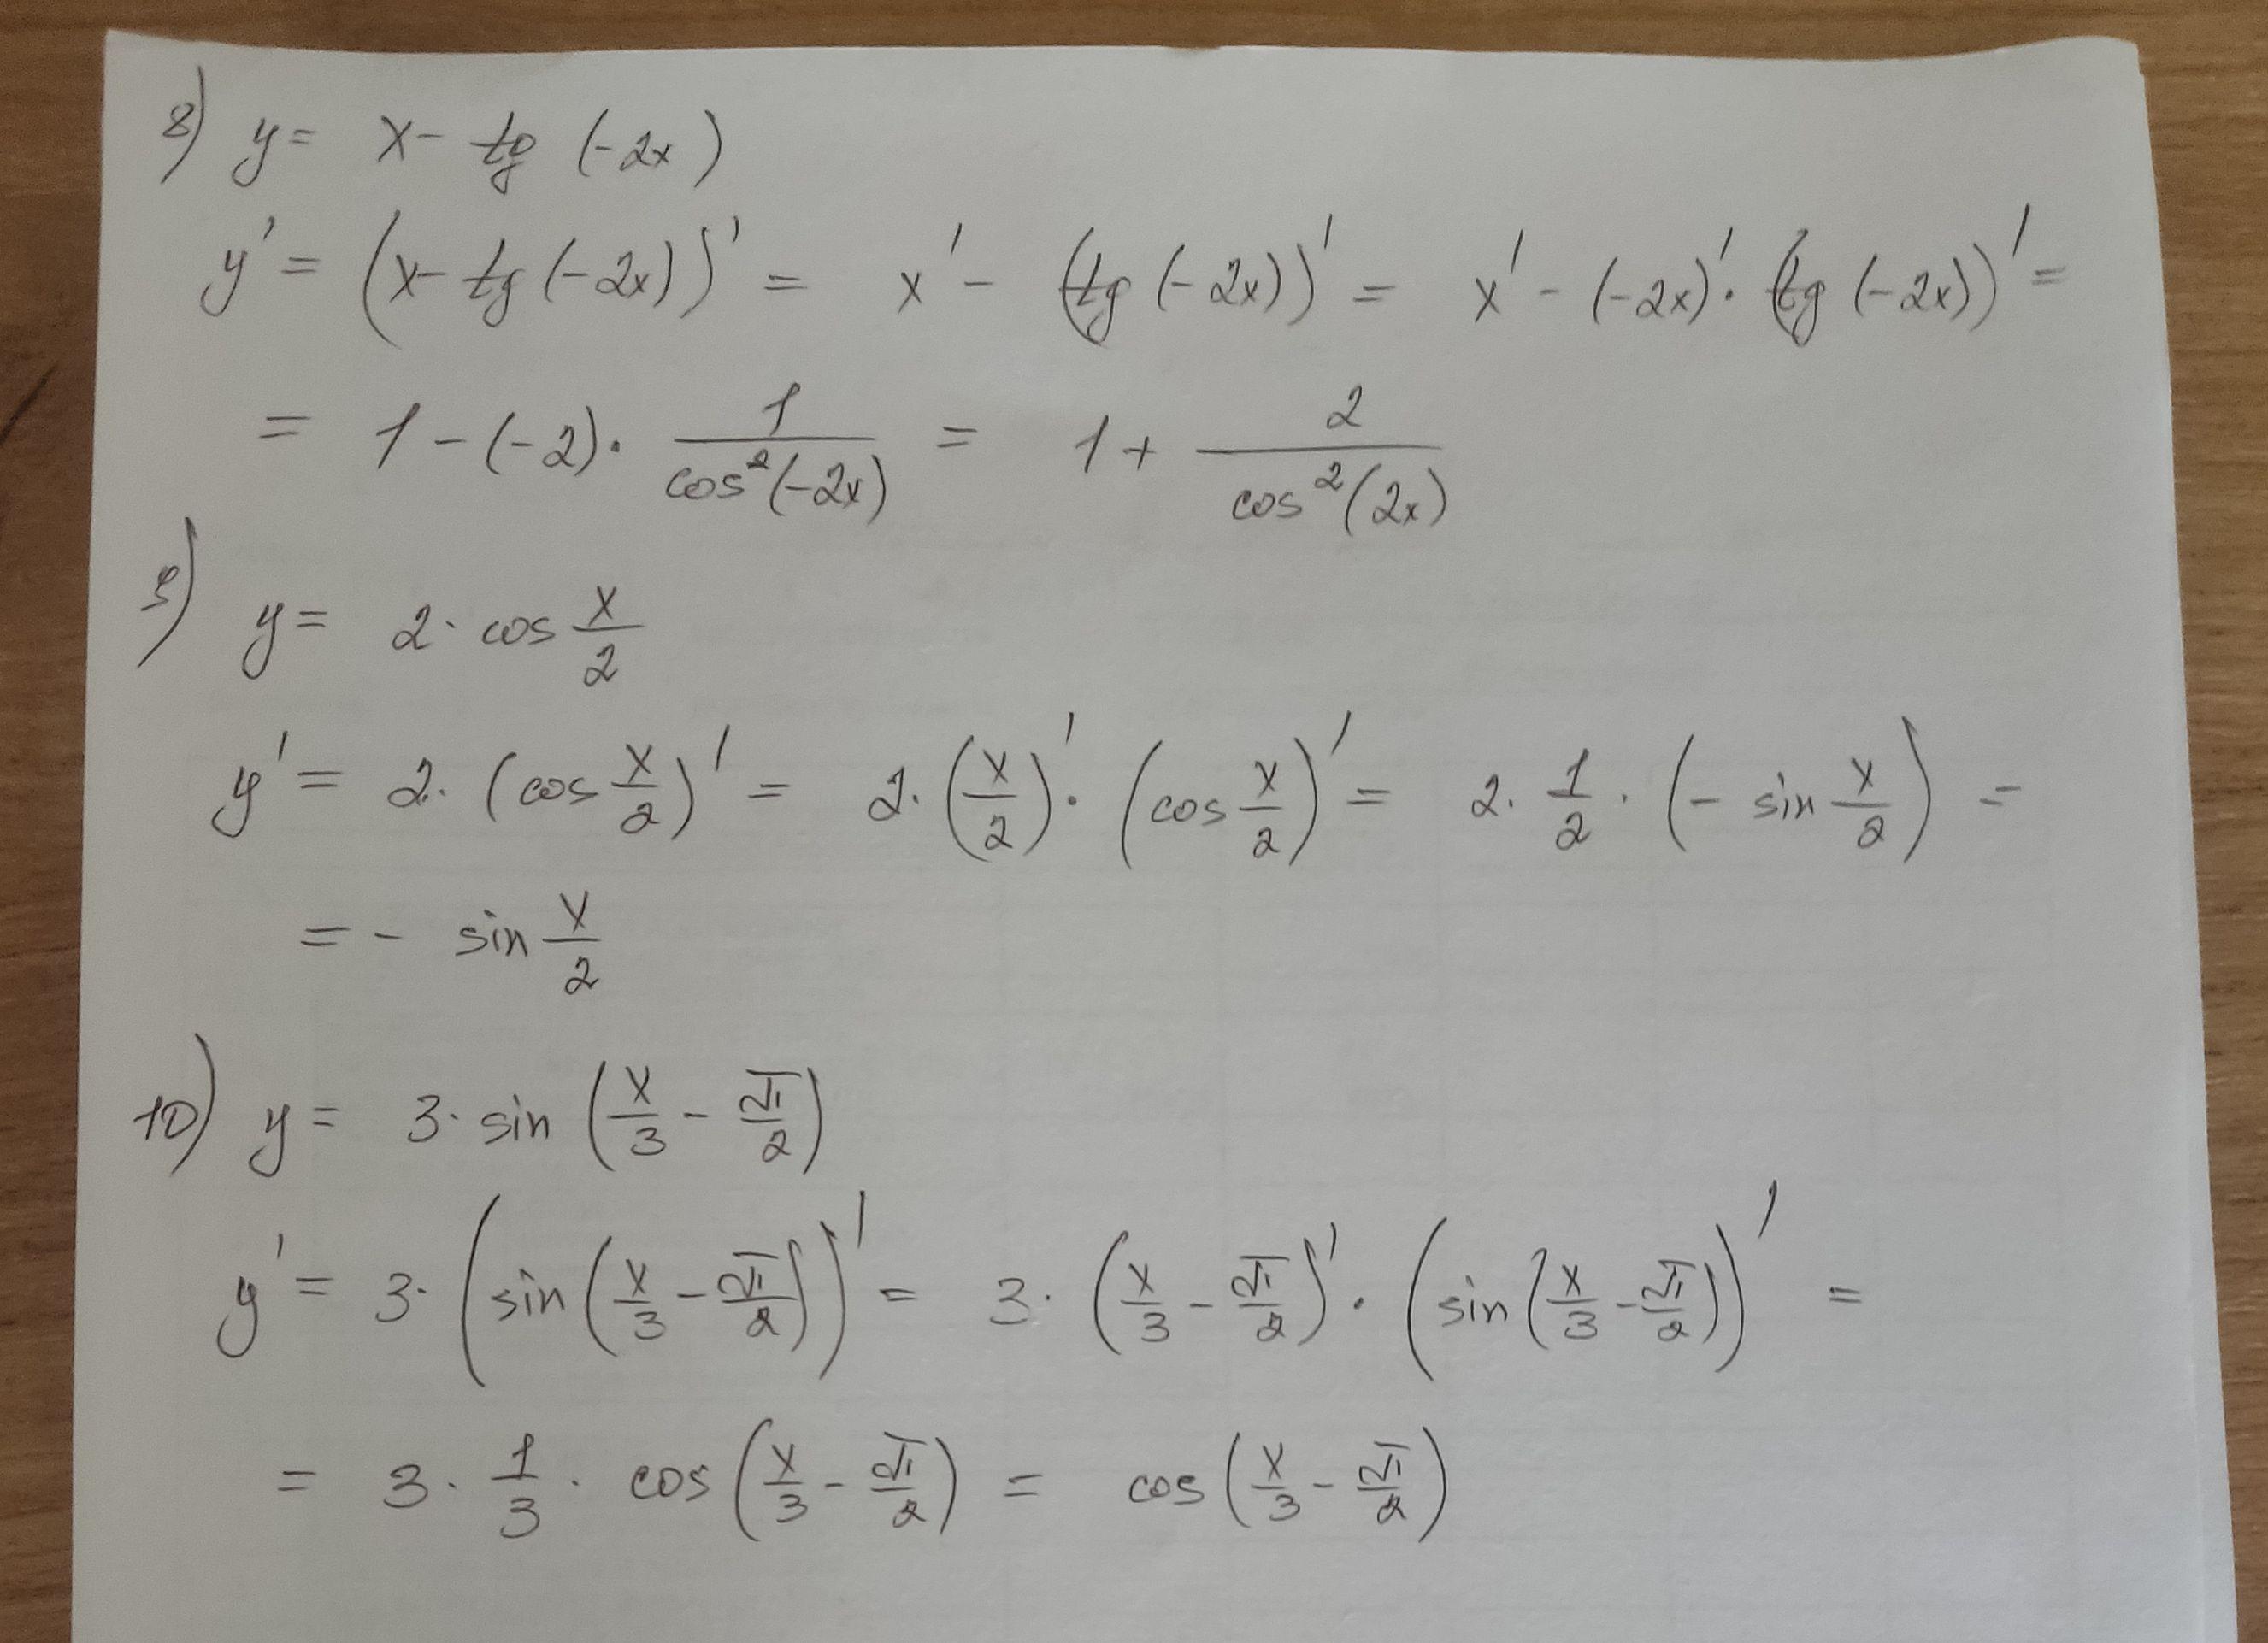 8) y = x - tg (-2x)
y' = (x - tg (-2x))' = x' - (tg (-2x))' = x' - (-2x)' · (tg (-2x))' =
= 1 - (-2) · 1/cos²(-2x) = 1 + 2/cos²(2x)
9) y = 2 · cos x/2
y' = 2 · (cos x/2)' = 2 · (x/2)' · (cos x/2)' = 2 · 1/2 · (- sin x/2) =
= - sin x/2
10) y = 3 · sin (x/3 - π/2)
y' = 3 · (sin (x/3 - π/2))' = 3 · (x/3 - π/2)' · (sin (x/3 - π/2))' =
= 3 · 1/3 · cos (x/3 - π/2) = cos (x/3 - π/2)